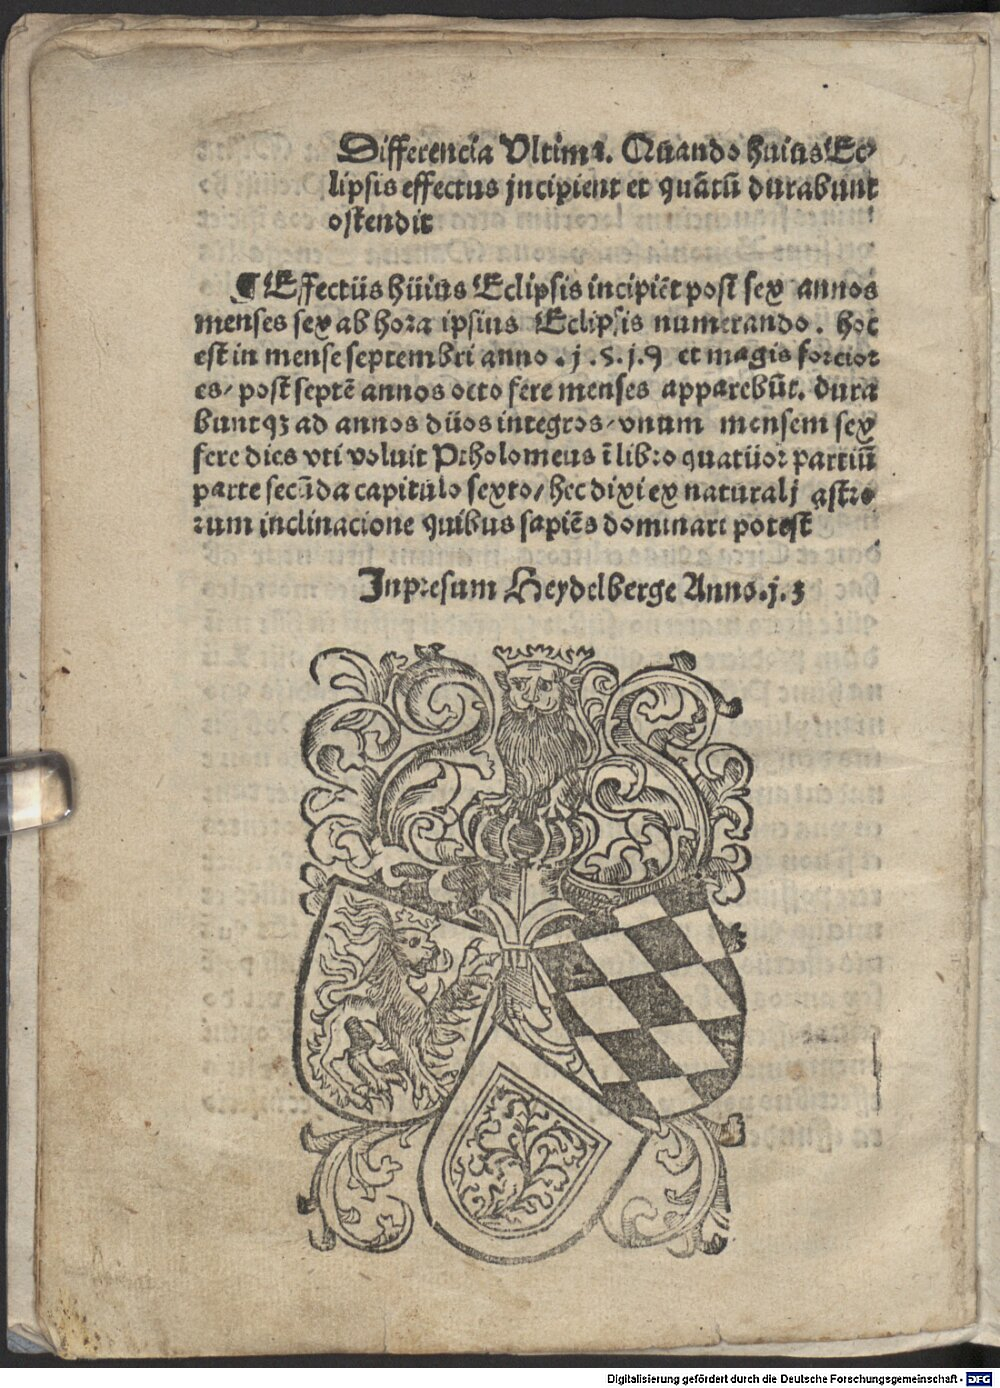 Differencia Vltima. Quando huius Ec⸗
lipsis effectus jncipient et quātū durabunt
ostendit
¶ Effectus huius Eclipsis incipiēt post sex annos
menses sex ab hora ipsius Eclipsis numerando. hoc
est in mense septembri anno .j.5.j.9 et magis forcior
es/ post septē annos octo fere menses apparebūt. dura
buntqꝫ ad annos düos integros/ vnum mensem sex
fere dies vti voluit Ptholomeus ī libro quatüor partiū
parte secūda capitulo sexto/ hec dixi ex naturalj astro
rum inclinacione quibus sapiēs dominari potest
Inpresum Heydelberge Anno.j.3
Digitalisierung gefördert durch die Deutsche Forschungsgemeinschaft - DFG